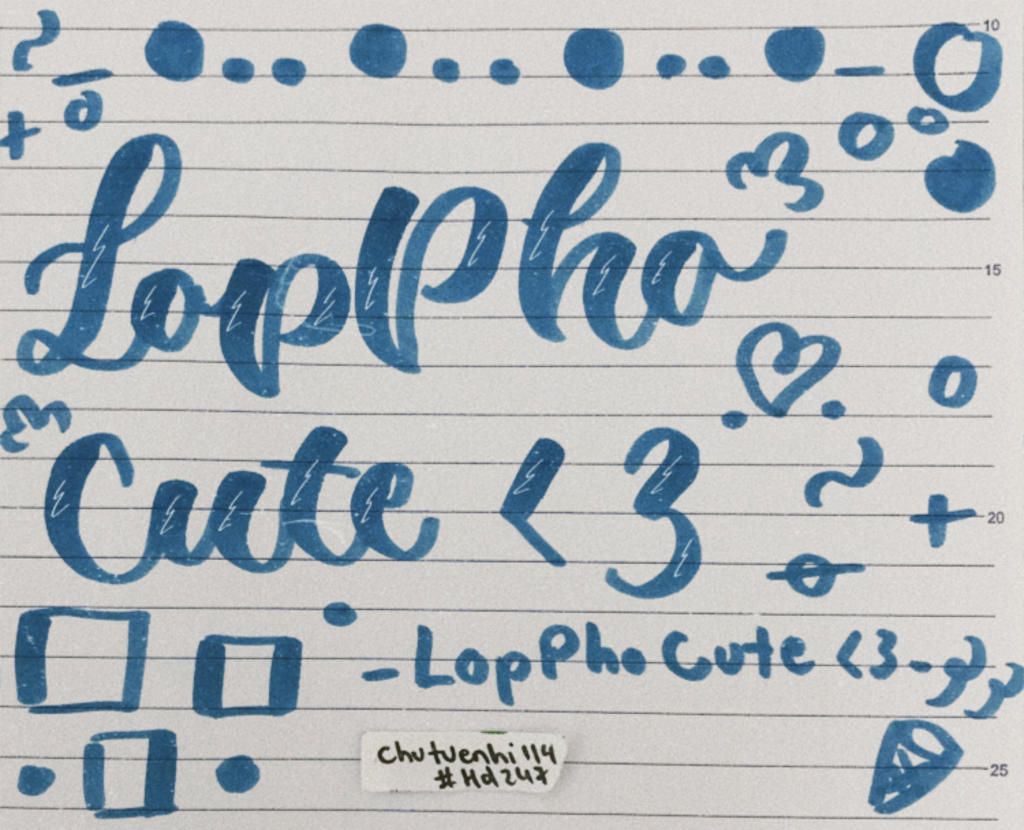 10
LopPho
15
Cute <3
20
- LopPho Cute <3 -
chutuenhi 114
#Hd247
25